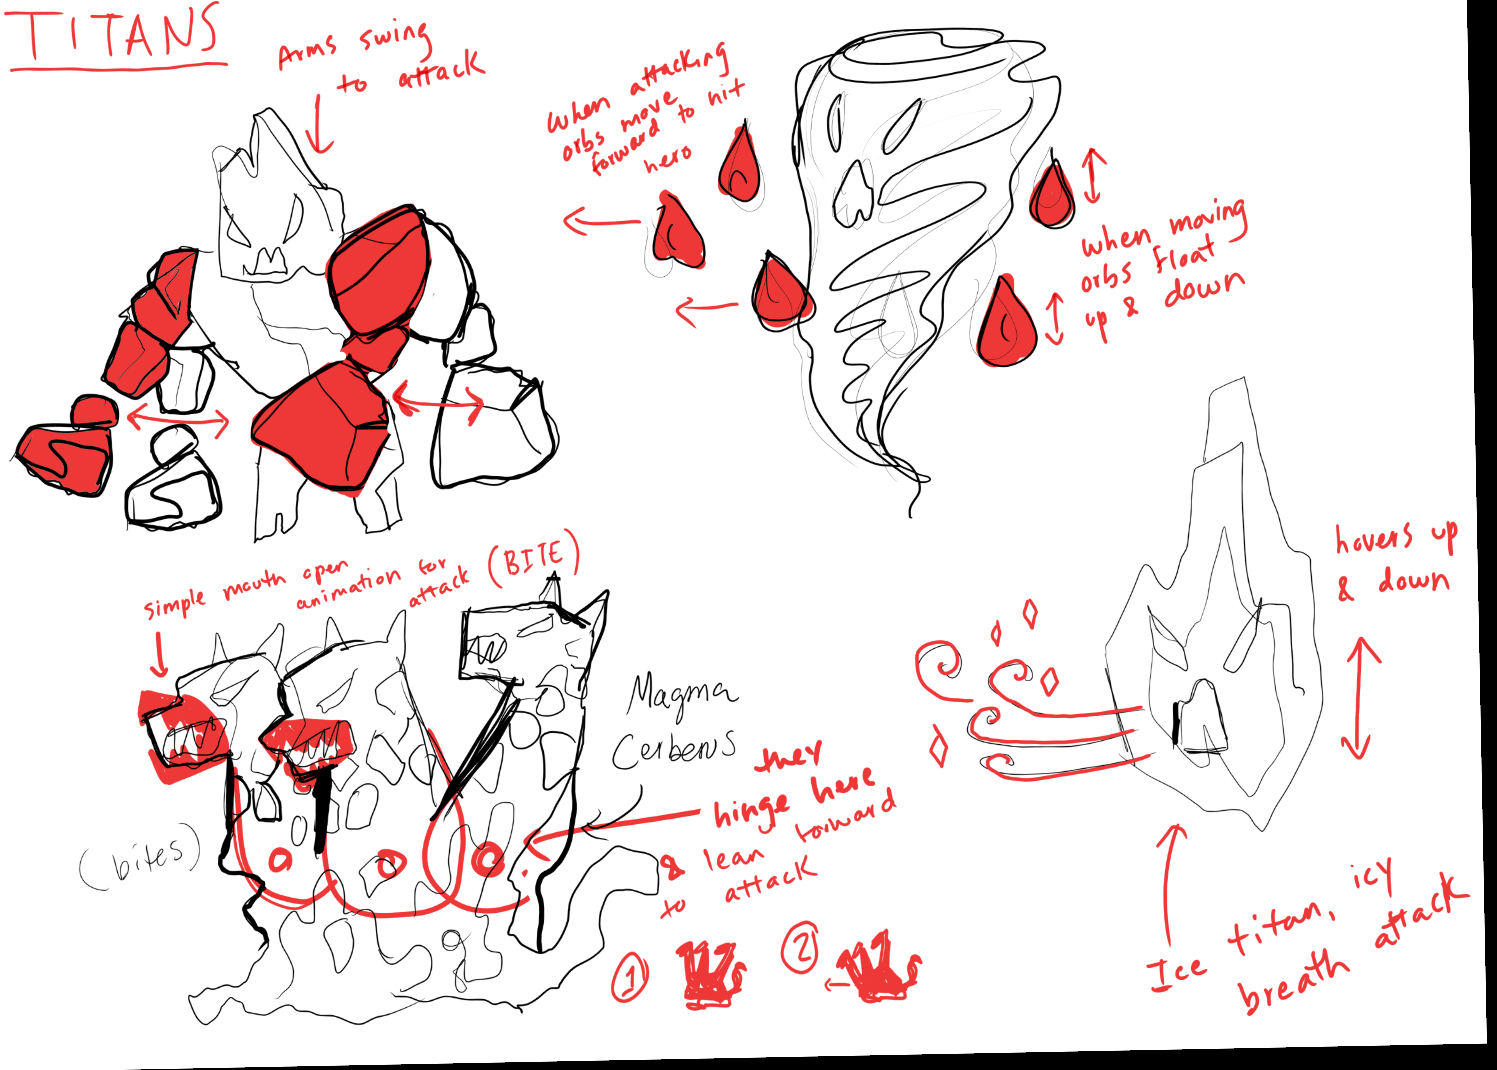 TITANS
Arms swing
to attack
when attacking
orbs move
forward to hit
hero
when moving
orbs float
up & down
simple mouth open
animation for
attack (BITE)
(bites)
Magma
Cerberus
they
hinge here
& lean forward
to attack
1
2
hovers up
& down
Ice titan, icy
breath attack